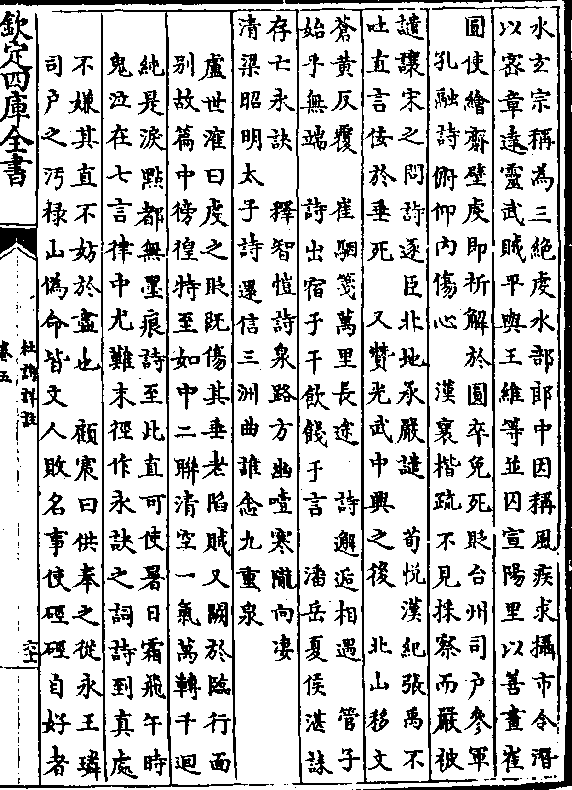 水玄宗稱為三絕䖍水部郎中因稱風疾求攝市令潛
以宻章達靈武賊平與王維等並囚宣陽里以善畫崔
圓使繪齋壁䖍即祈解於圓卒免死貶台州司户參軍
孔融詩俯仰内傷心　漢襄楷疏不見採察而嚴被
譴讓宋之問詩逐臣北地承嚴譴　荀悦漢紀張禹不
吐直言佞於垂死　又贊光武中興之後　北山移文
蒼黄反覆　崔駰箋萬里長途　詩邂逅相遇　管子
始乎無端　詩出宿于干飲餞于言　潘岳夏侯湛誄
存亡永訣　釋智愷詩泉路方幽噎寒隴向凄
清梁昭明太子詩還信三洲曲誰念九重泉
盧世㴶曰䖍之貶既傷其垂老陷賊又闕於臨行面
别故篇中徬徨特至如中二聯清空一氣萬轉千迴
純是淚點都無墨痕詩至此直可使暑日霜飛午時
鬼泣在七言律中尤難末徑作永訣之詞詩到真處
不嫌其直不妨於盡也　顧宸曰供奉之從永王璘
司户之汚禄山偽命皆文人敗名事使硜硜自好者
欽定四庫全書
杜詩詳註
卷五